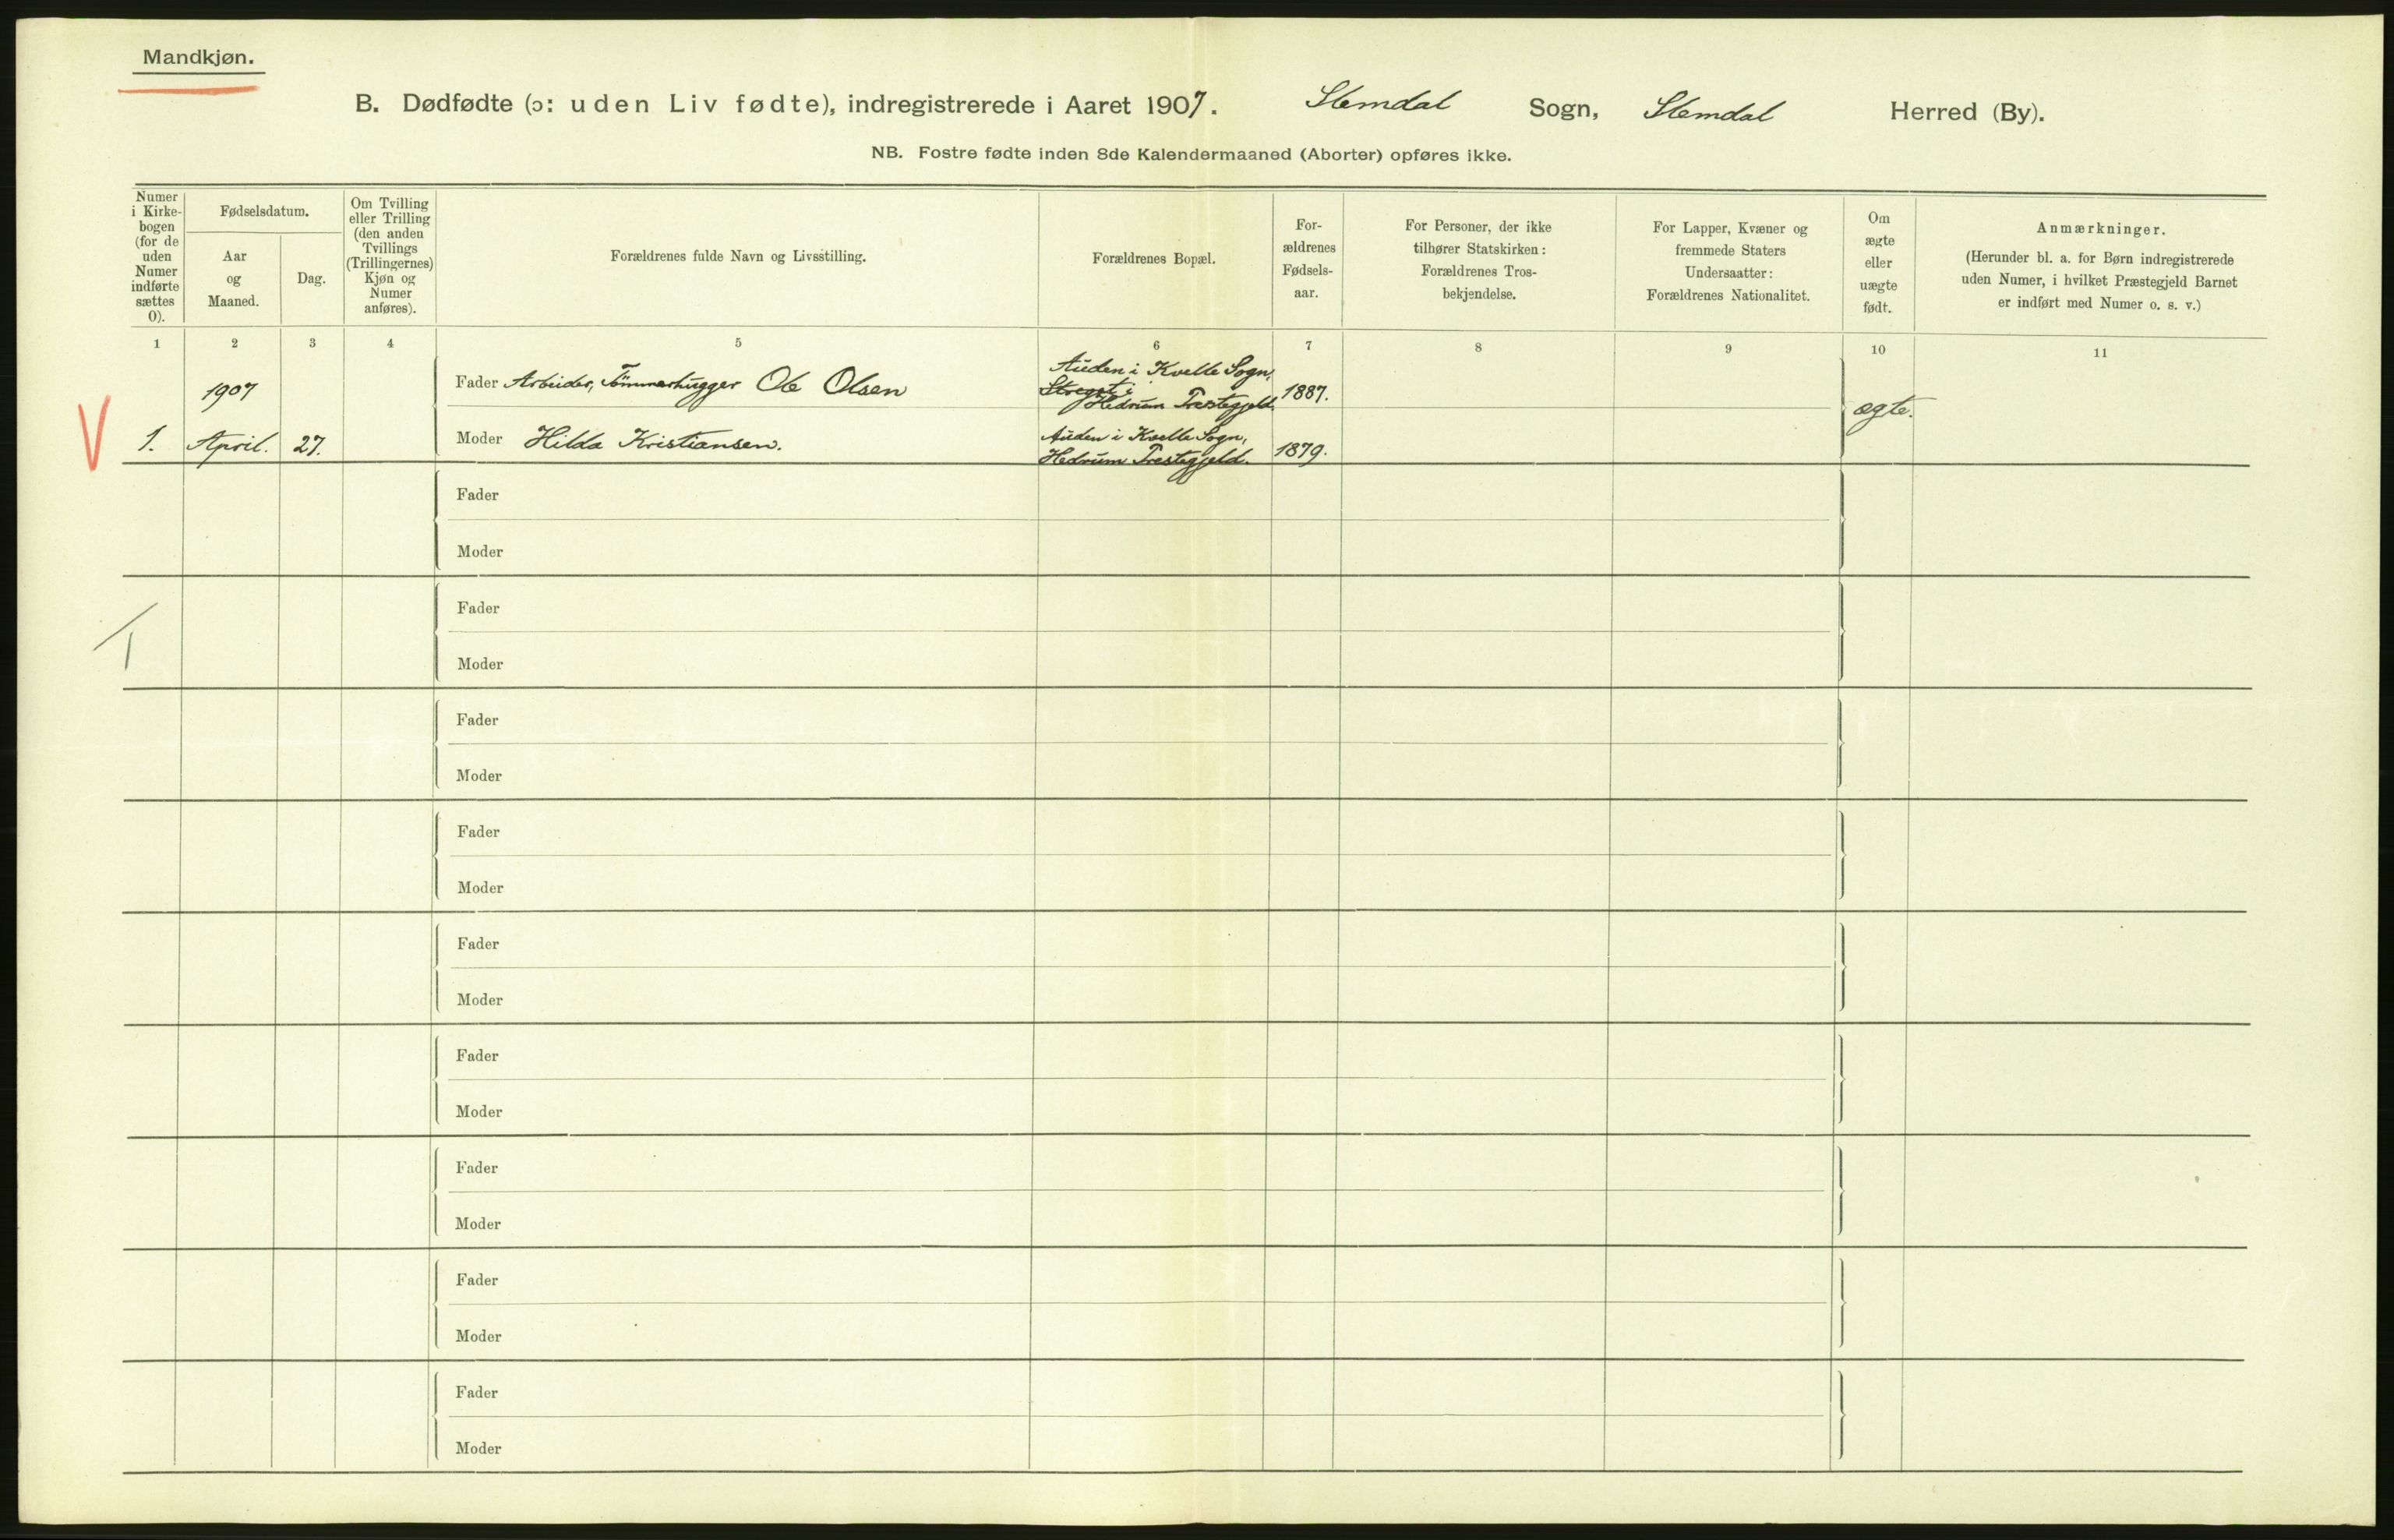 Mandkjøn.
B. Dødfødte (ɔ: uden Liv fødte), indregistrerede i Aaret 1907. Slemdal Sogn, Slemdal Herred (By).
NB. Fostre fødte inden 8de Kalendermaaned (Aborter) opføres ikke.
Numer
i Kirke-
bogen
(for de
uden
Numer
indførte
sættes
0).
Fødselsdatum.
Aar
og
Maaned.
Dag.
Om Tvilling
eller Trilling
(den anden
Tvillings
(Trillingernes)
Kjøn og
Numer
anføres).
Forældrenes fulde Navn og Livsstilling.
Forældrenes Bopæl.
For-
ældrenes
Fødsels-
aar.
For Personer, der ikke
tilhører Statskirken:
Forældrenes Tros-
bekjendelse.
For Lapper, Kvæner og
fremmede Staters
Undersaatter:
Forældrenes Nationalitet.
Om
ægte
eller
uægte
født.
Anmærkninger.
(Herunder bl. a. for Børn indregistrerede
uden Numer, i hvilket Præstegjeld Barnet
er indført med Numer o. s. v.)
1 2 3 4 5 6 7 8 9 10 11
1907
1. April. 27.
Fader Arbeider, Tømmerhugger Ole Olsen
Auden i Kvelle Sogn,
Hedrum Prestegjeld.
1887.
Moder Hilda Kristiansen.
Auden i Kvelle Sogn,
Hedrum Prestegjeld.
1879.
ægte.
V
Fader
Moder
Fader
Moder
Fader
Moder
Fader
Moder
Fader
Moder
Fader
Moder
Fader
Moder
Fader
Moder
Fader
Moder